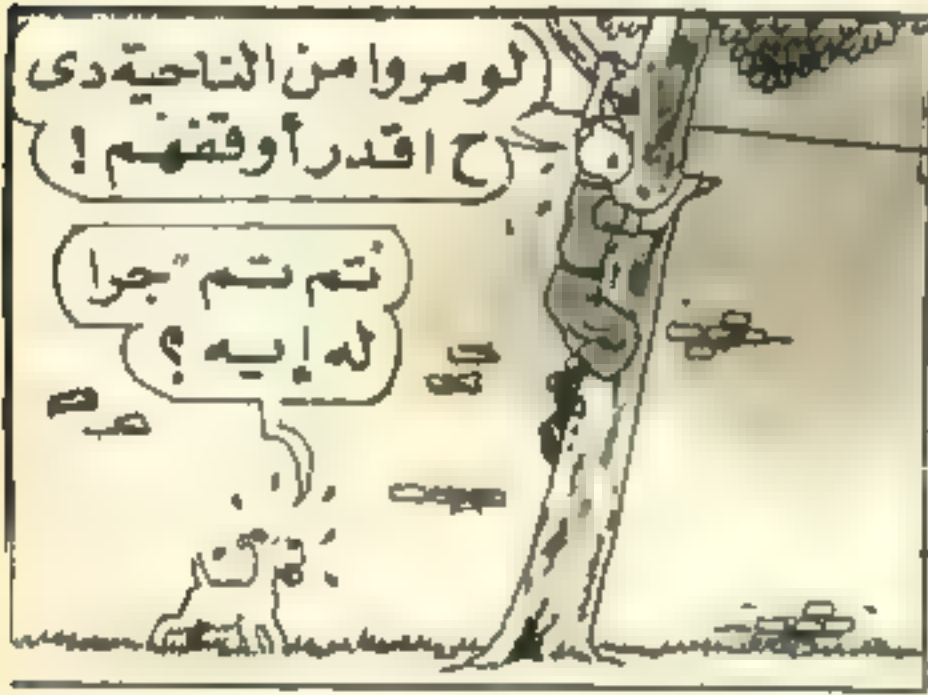 لو مروا من الناحية دى
ح اقدر أوقفهم !
تم تم "جرا
له إيه ؟